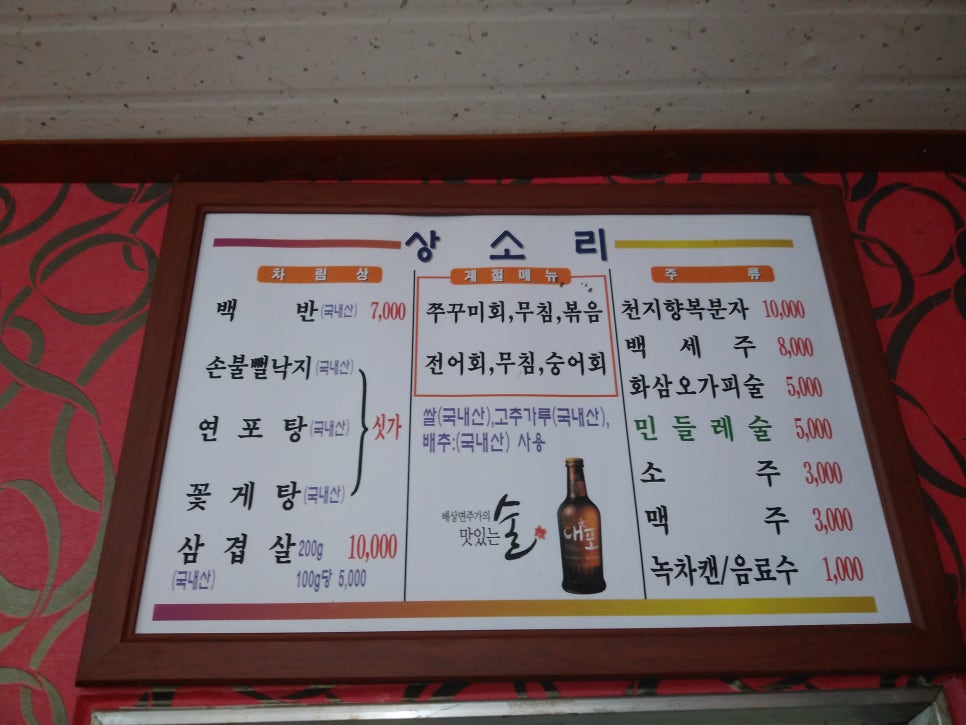 상 소 리
차 림 상
백 반 (국내산) 7,000
손불뻘낙지 (국내산)
연 포 탕 (국내산)
꽃 게 탕 (국내산)
싯가
삼 겹 살 200g 10,000
(국내산) 100g당 5,000
계 절 메 뉴
쭈꾸미회,무침,볶음
전어회,무침,숭어회
쌀(국내산),고추가루(국내산),
배추:(국내산) 사용
배상면주가의
맛있는 술
대포
주 류
천지향복분자 10,000
백 세 주 8,000
화삼오가피술 5,000
민 들 레 술 5,000
소 주 3,000
맥 주 3,000
녹차캔/음료수 1,000